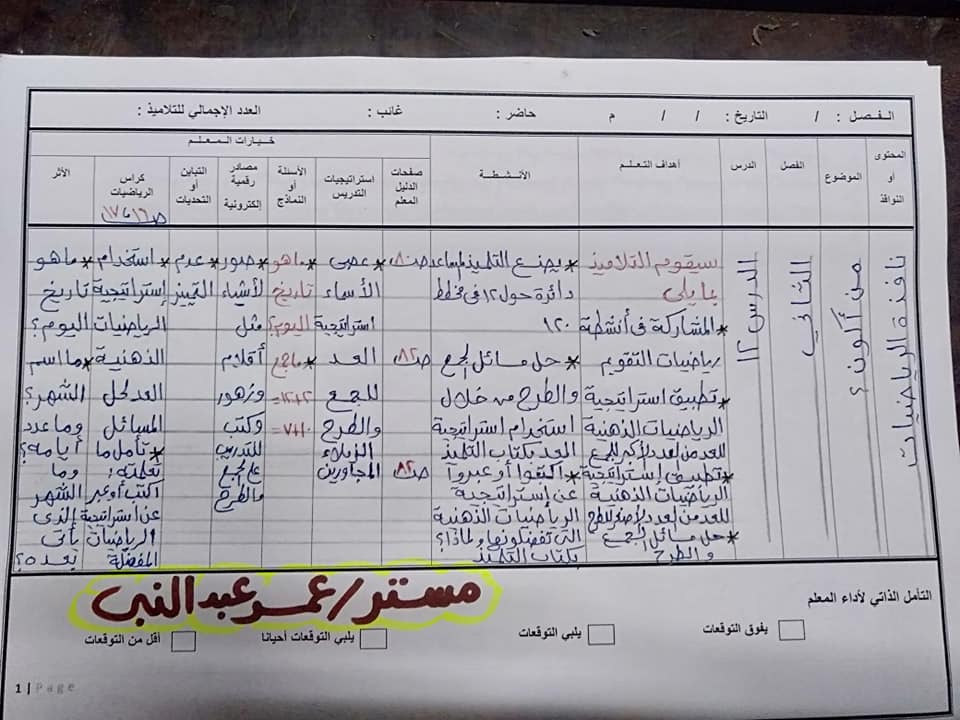 الفصل : / التاريخ : / / م حاضر : غائب : العدد الإجمالي للتلاميذ :
المحتوى أو النوافذ
الموضوع
الفصل
الدرس
أهداف التعلم
الأنشطة
خيارات المعلم
صفحات الدليل المعلم
استراتيجيات التدريس
الأسئلة أو النماذج
مصادر رقمية إلكترونية
التباين أو التحديات
كراس الرياضيات
ص ١٦، ١٧
الأثر
نافذة الرياضيات
من أكون؟
الثاني
الدرس ١٢
سيقوم التلاميذ
بما يلي
* المشاركة فى أنشطة
رياضيات التقويم
* تطبيق استراتيجية
الرياضيات الذهنية
للعد من لعدد لأكبر للجمع
* تطبيق إستراتيجية
الرياضيات الذهنية
للعد من لعدد لأصغر للطرح
* حل مسائل الجمع
والطرح
* يصنع التلميذ لمساعد
دائرة حول ١٢ فى مخطط
١٢٠
* حل مسائل الجمع
والطرح من خلال
استخدام استراتيجية
العد بكتاب التلميذ
* اكتفوا أو عبروا
عن إستراتيجية
الرياضيات الذهنية
التى تفضلونها ولماذا؟
بكتاب التلميذ
ص ٨٠
ص ٨٢
ص ٨٢
* عصى
الأسماء
استراتيجية
العد
للجمع
والطرح
الزملاء
المجاورين
* ما هو
تاريخ
اليوم؟
* صور
لأشياء
مثل
أقلام
وزهور
وكتب
للتدريب
على الجمع
والطرح
* عدم
التميز
* استخدام
إستراتيجية
الرياضيات
الذهنية
العد لحل
المسائل
* تأمل ما
تعلمته؛
اكتب أو عبر
عن استراتيجية
الرياضيات
المفضلة
* ما هو
تاريخ
اليوم؟
* ما اسم
الشهر؟
وما عدد
أيامه؟
وما
الشهر
الذى
يأتى
بعده؟
مستر/عمر عبد النبى
التأمل الذاتي لأداء المعلم
يفوق التوقعات
يلبي التوقعات
يلبي التوقعات أحيانا
أقل من التوقعات
1 | Page